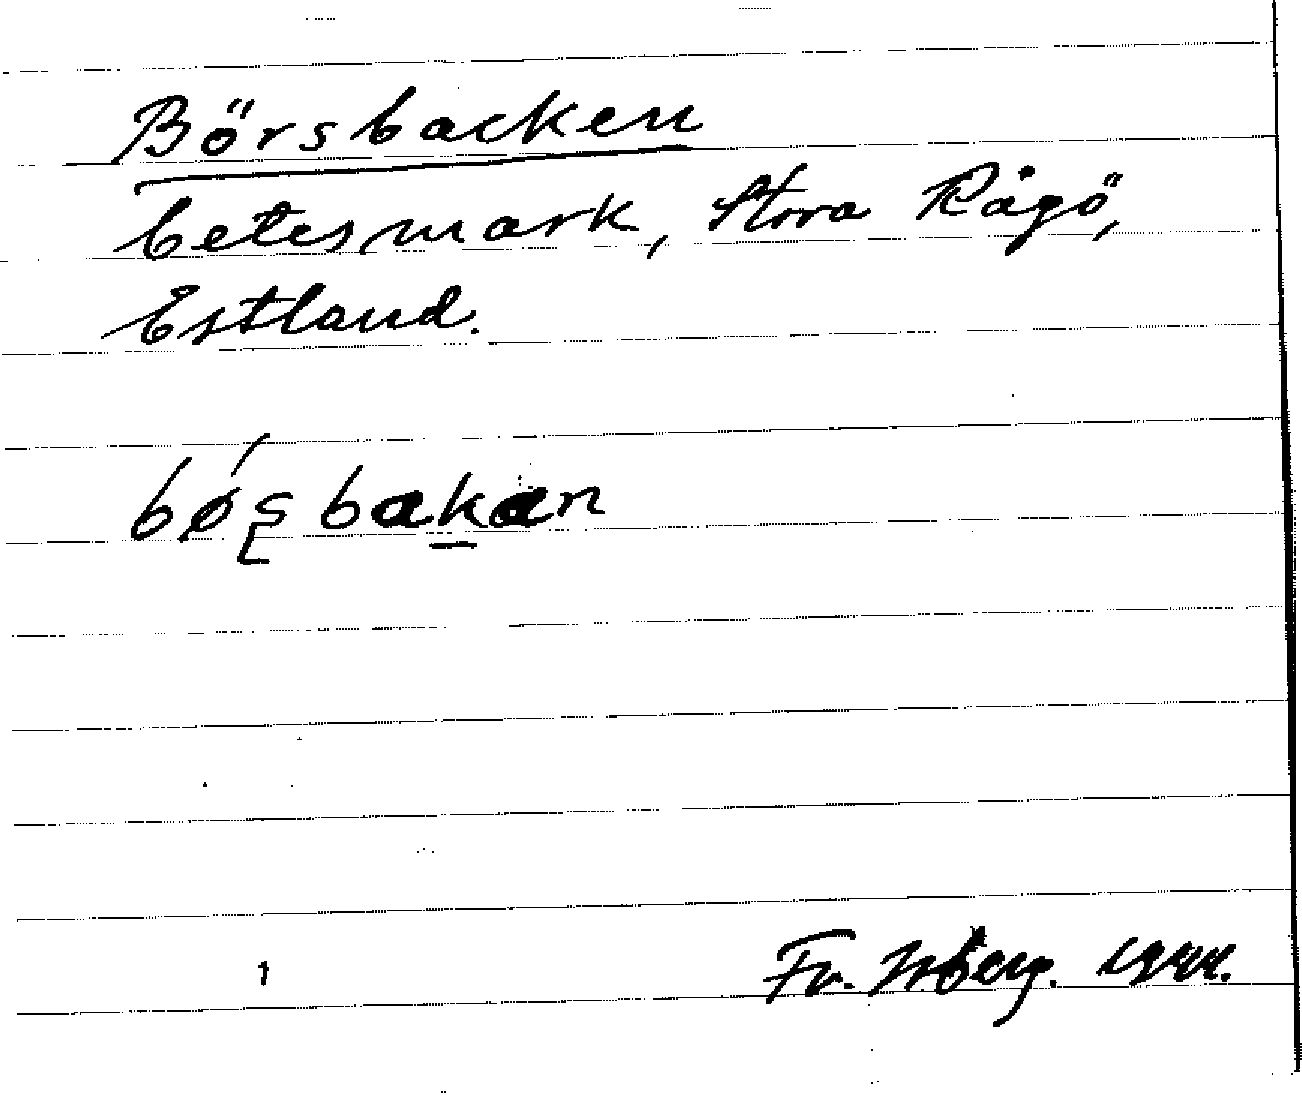 Börsbacken
betesmark, Stora Rågö,
Estland.
bø´ʂbakan
1
Fr. 1944.